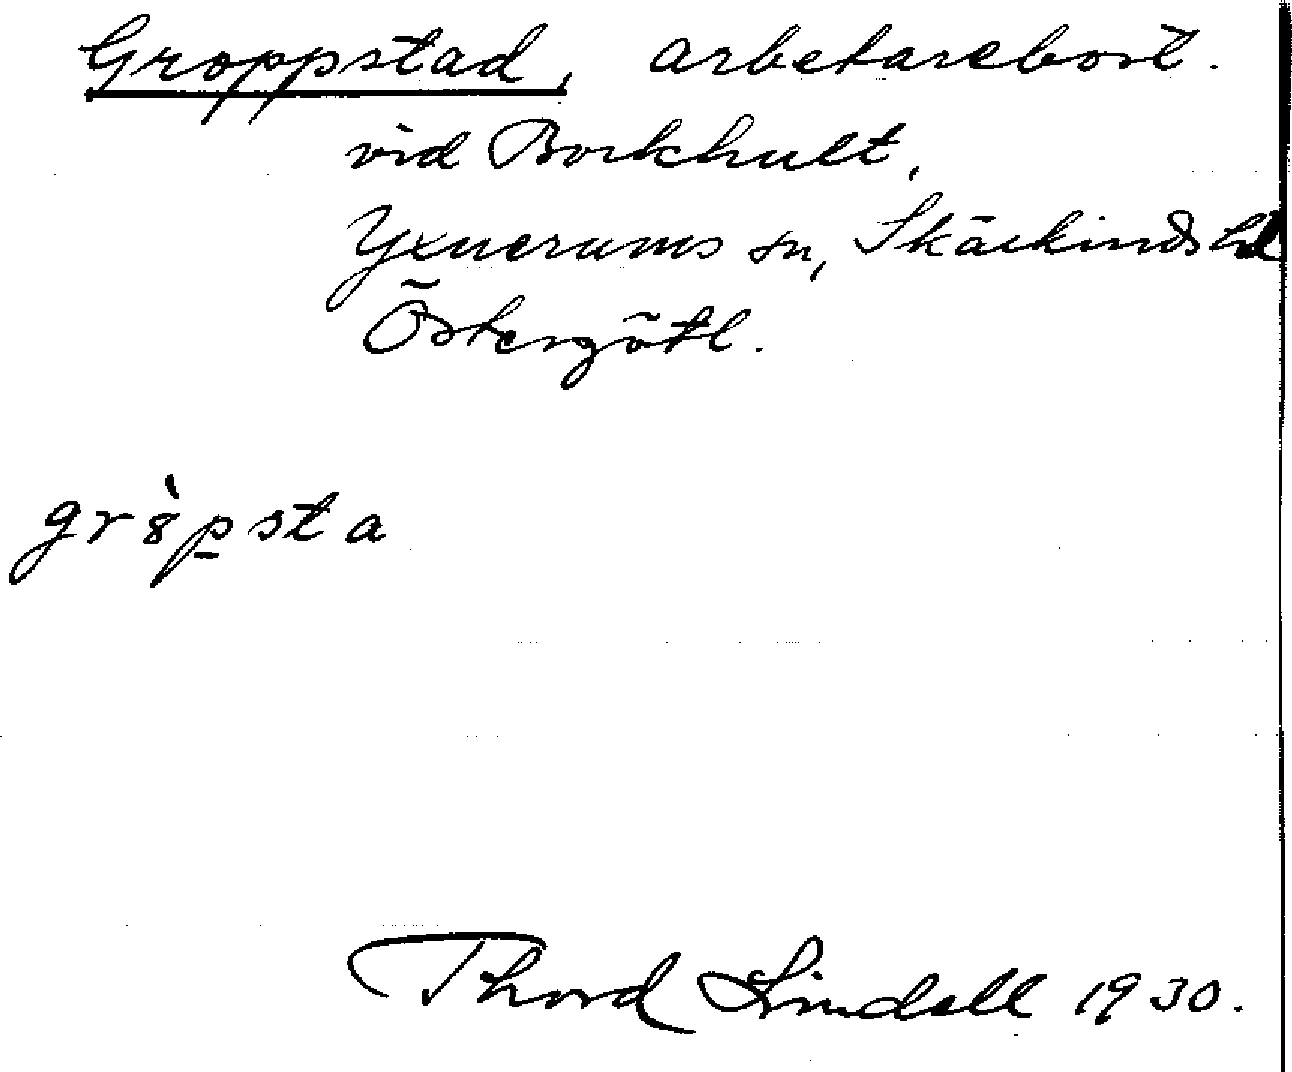 Groppstad, arbetarebost.
vid Borkhult,
Yxnerums sn, Skärkinds hd
Östergötl.
gr8̀p̲sta
Thord Lindell 1930.